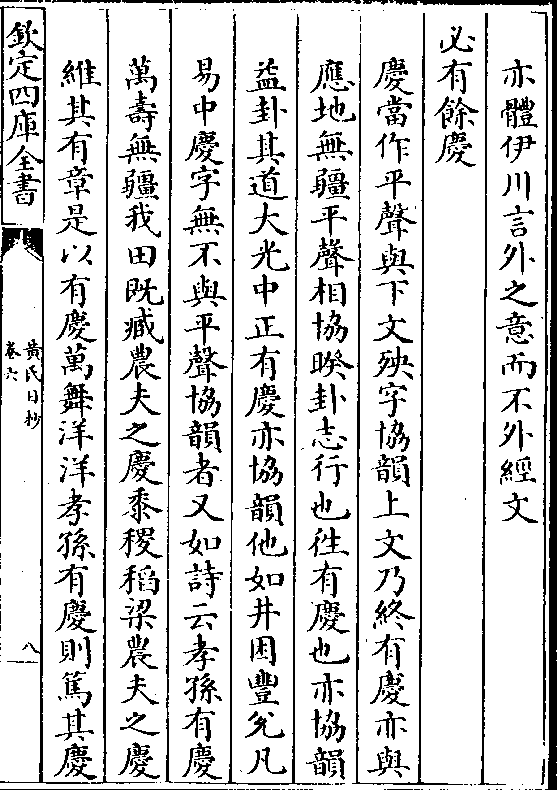 亦體伊川言外之意而不外經文
必有餘慶
慶當作平聲與下文殃字協韻上文乃終有慶亦與
應地無疆平聲相協睽卦志行也徃有慶也亦協韻
益卦其道大光中正有慶亦協韻他如井困豐兊凡
易中慶字無不與平聲協韻者又如詩云孝孫有慶
萬壽無疆我田既臧農夫之慶黍稷稻梁農夫之慶
維其有章是以有慶萬舞洋洋孝孫有慶則篤其慶
欽定四庫全書
黄氏日抄
卷六
八